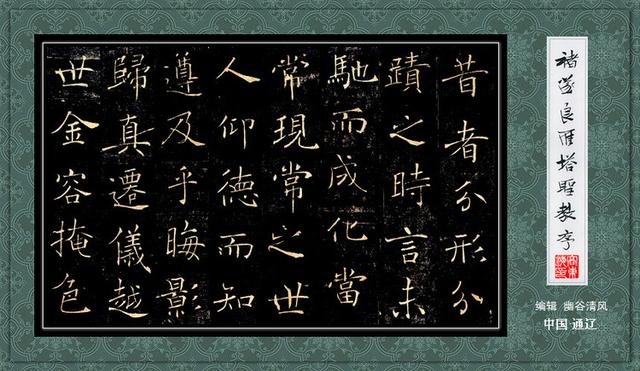 褚遂良雁塔聖教序
昔者分形分
蹟之時言未
馳而成化當
常現常之世
人仰德而知
遵及乎晦影
歸真遷儀越
世金容掩色
编辑 幽谷清风
中国·通辽